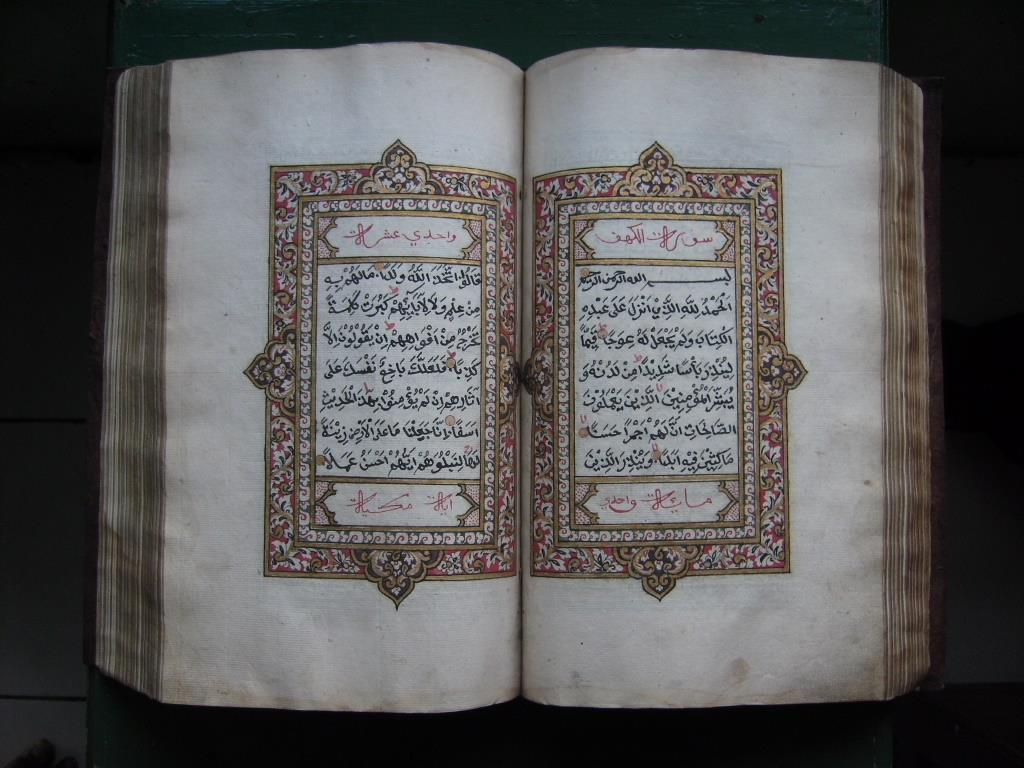 سورة الكهف
بسم الله الرحمن الرحيم
اَلْحَمْدُ لِلّٰهِ الَّذِيْ اَنْزَلَ عَلَى عَبْدِهِ
الْكِتَابَ وَلَمْ يَجْعَلْ لَهُ عِوَجًا قَيِّمًا
لِيُنْذِرَ بَأْسًا شَدِيْدًا مِنْ لَدُنْهُ وَ
يُبَشِّرَ الْمُؤْمِنِيْنَ الَّذِيْنَ يَعْمَلُوْنَ
الصَّالِحَاتِ اَنَّ لَهُمْ اَجْرًا حَسَنًا
مَاكِثِيْنَ فِيْهِ اَبَدًا وَيُنْذِرَ الَّذِيْنَ
ماية واحدي
واحدي عشرة
قَالُوْا اتَّخَذَ اللّٰهُ وَلَدًا مَالَهُمْ بِهِ
مِنْ عِلْمٍ وَلَا لِاٰبَائِهِمْ كَبُرَتْ كَلِمَةً
تَخْرُجُ مِنْ اَفْوَاهِهِمْ اِنْ يَقُوْلُوْنَ اِلَّا
كَذِبًا فَلَعَلَّكَ بَاخِعٌ نَفْسَكَ عَلَى
اٰثَارِهِمْ اِنْ لَمْ يُؤْمِنُوْا بِهٰذَا الْحَدِيْثِ
اَسَفًا اِنَّا جَعَلْنَا مَا عَلَى الْاَرْضِ زِيْنَةً
لَهَا لِنَبْلُوَهُمْ اَيُّهُمْ اَحْسَنُ عَمَلًا
اياة مكية